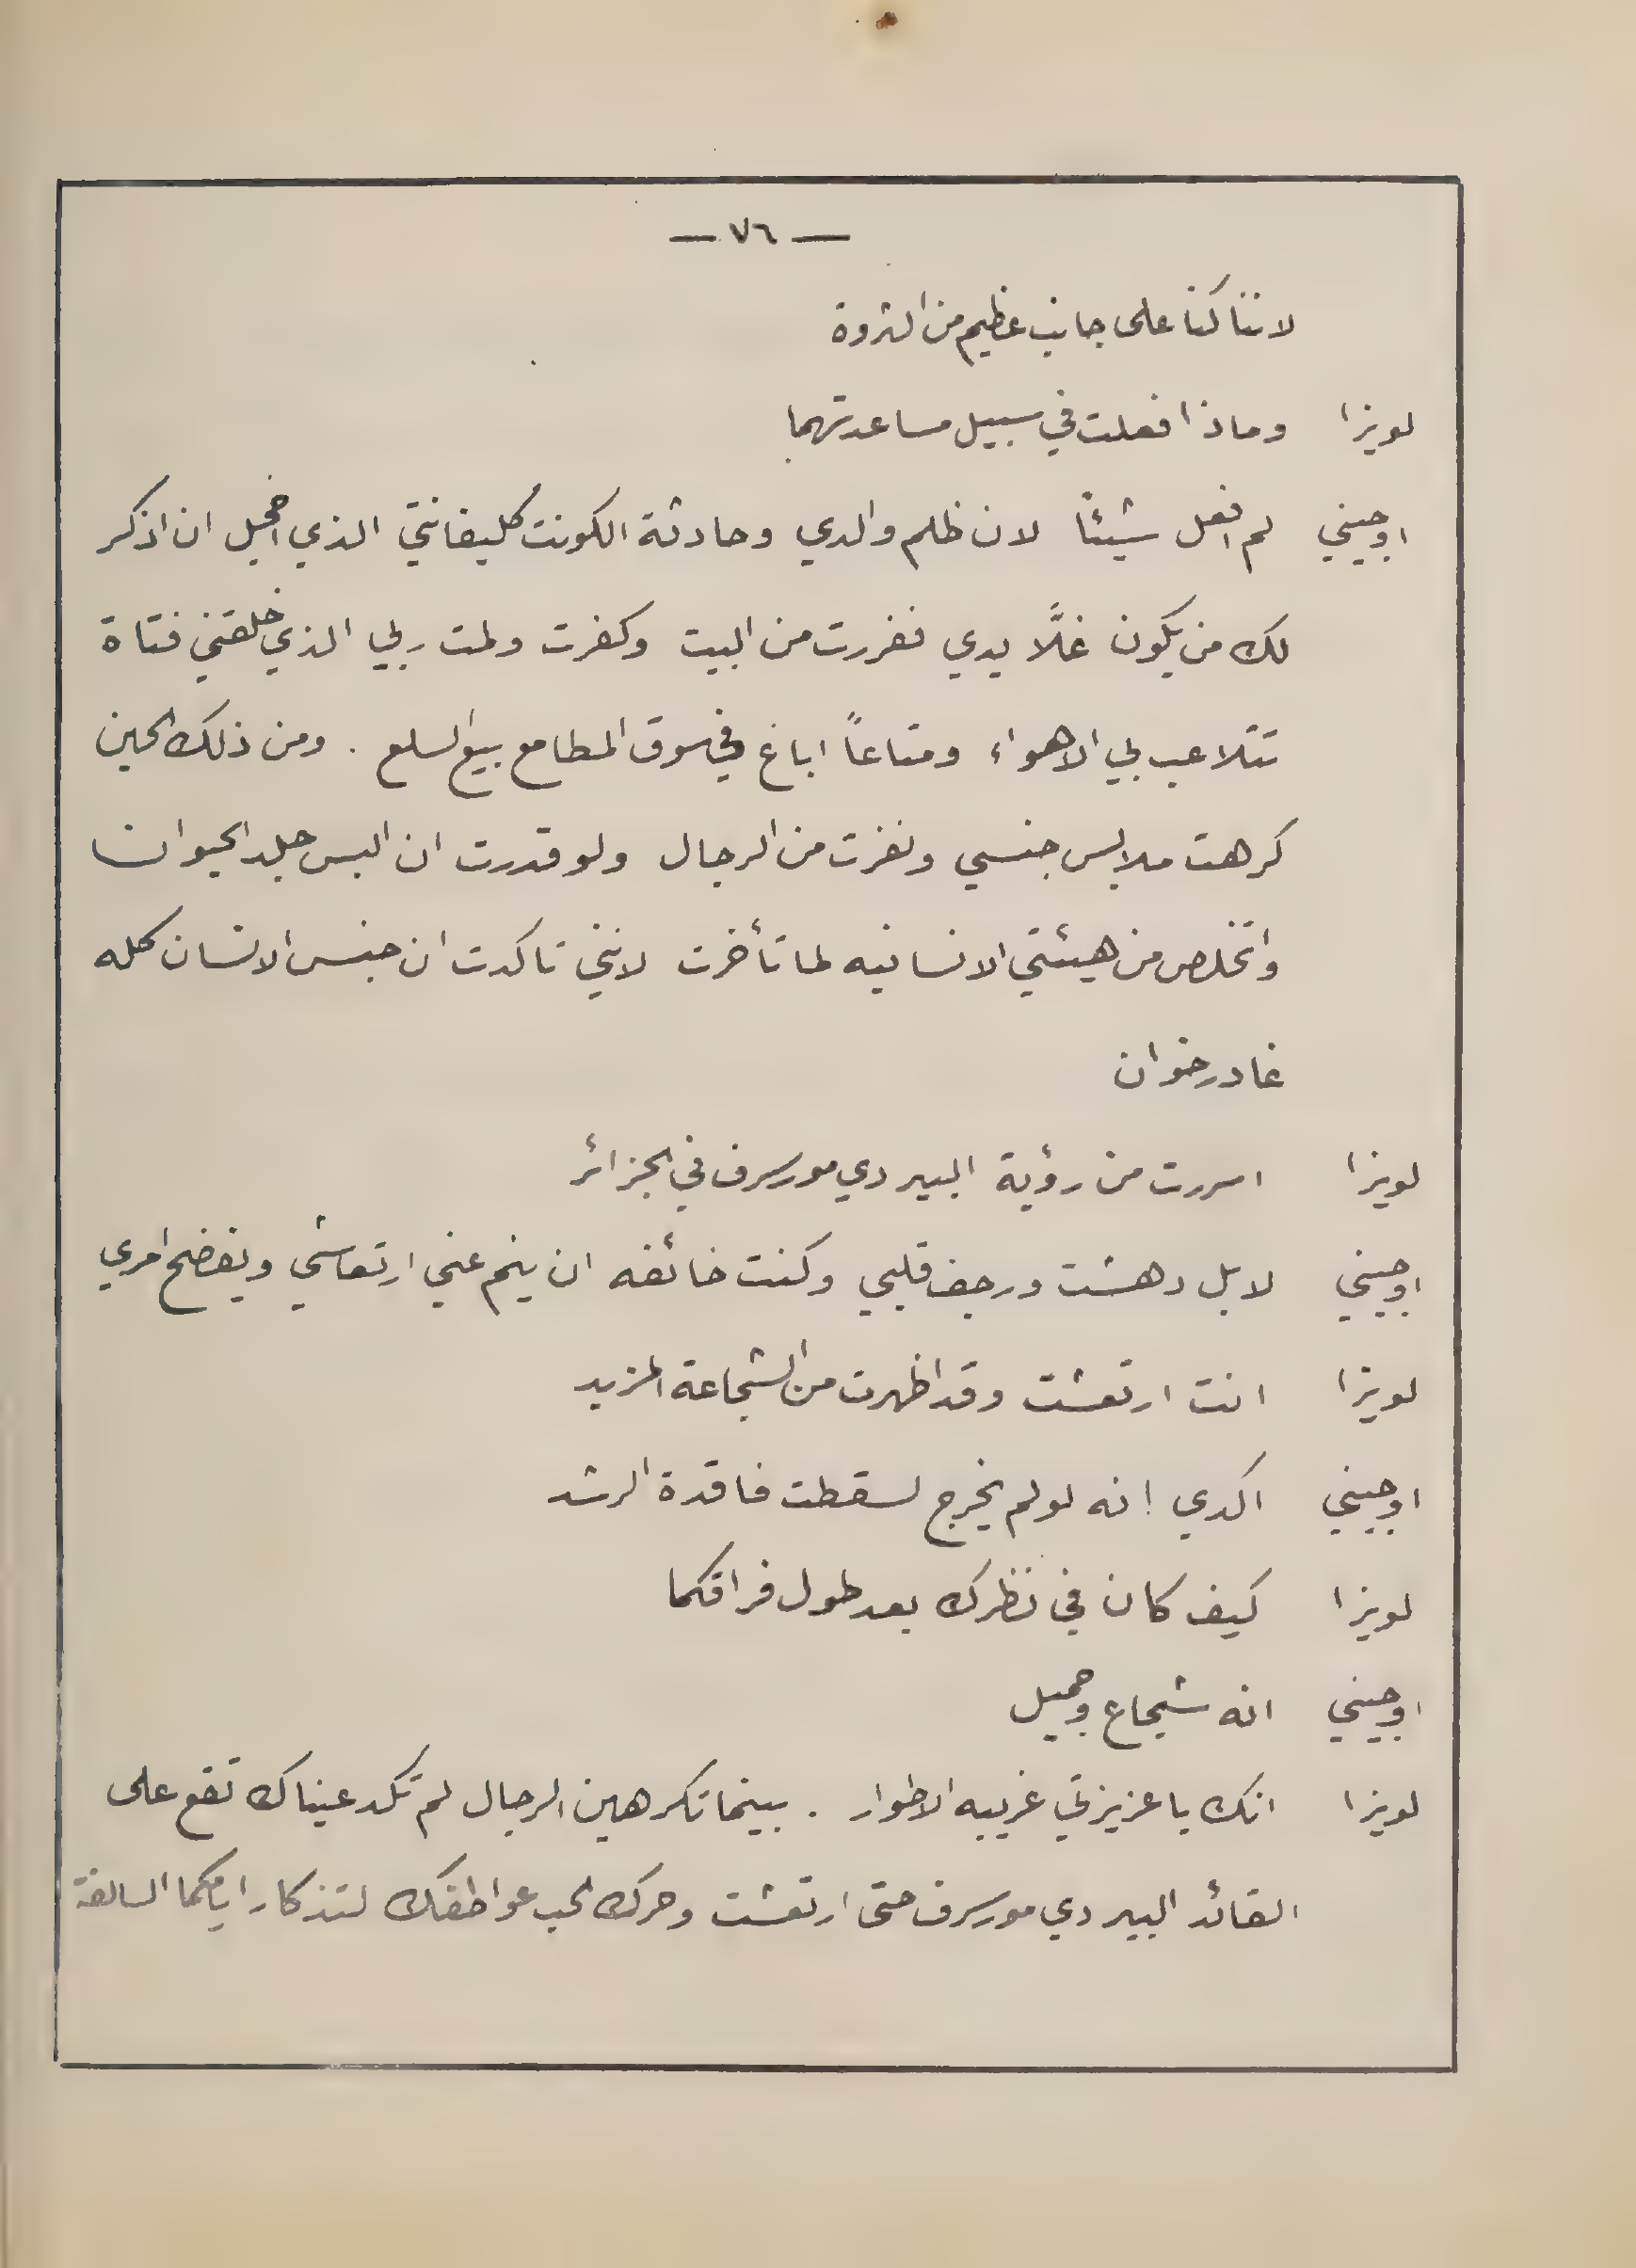 — ٧٦ —
لاننا كنا على جانب عظيم من الثروة
لويزا وماذا فعلت في سبيل مساعدتهما
اوجيني لم افعل شيئاً لان ظلم والدي وحادثة الكونت كليفانتي الذي اخجل ان اذكر
لك من يكون غلَّا يدي ففررت من البيت وكفرت ولمت ربي الذي خلقني فتاة
تتلاعب بي الاهواء ومتاعاً اباع في سوق المطامع بيع السلع . ومن ذلك الحين
كرهت ملابس جنسي ونفرت من الرجال ولو قدرت ان البس جلد الحيوان
واتخلص من هيئتي الانسانيه لما تأخرت لانني تاكدت ان جنس الانسان كله
غادر خوان
لويزا اسررت من رؤية البير دي مورسرف في الجزائر
اوجيني لا بل دهشت ورجف قلبي وكنت خائفه ان ينم عني ارتعاشي ويفضح امري
لويزا انت ارتعشت وقد اظهرت من الشجاعة المزيد
اوجيني اكدي انه لو لم يخرج لسقطت فاقدة الرشد
لويزا كيف كان في نظرك بعد طول فراقكما
اوجيني انه شجاع وجميل
لويزا انك يا عزيزتي غريبه الاطوار . بينما تكرهين الرجال لم تكد عيناك تقع على
القائد البير دي مورسرف حتى ارتعشت وحرك الحب عواطفك لتذكار ايامكما السالفة